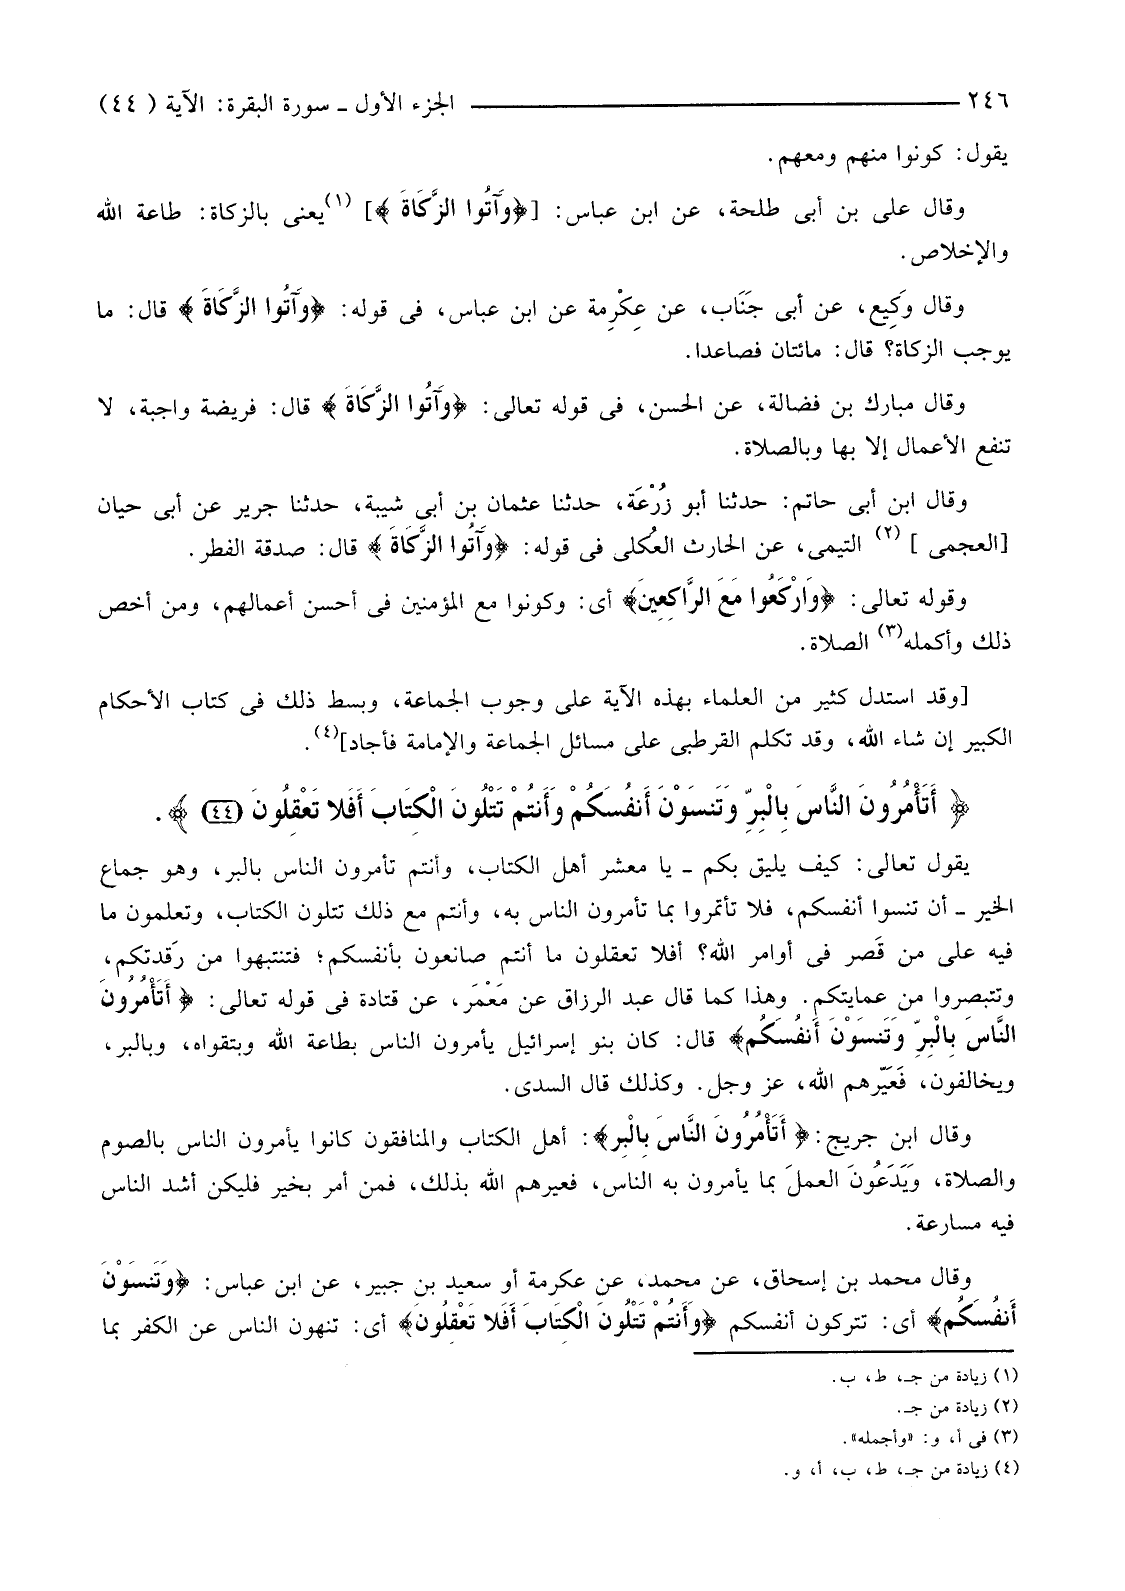 ٢٤٦ ــــــــــــــــــــ الجزء الأول ـ سورة البقرة: الآية ( ٤٤)
يقول: كونوا منهم ومعهم.
وقال على بن أبى طلحة، عن ابن عباس: [﴿وَآتُوا الزَّكَاةَ ﴾] (١)يعنى بالزكاة: طاعة الله
والإخلاص.
وقال وَكِيع، عن أبى جَنَاب، عن عِكْرِمة عن ابن عباس، فى قوله: ﴿وَآتُوا الزَّكَاةَ ﴾ قال: ما
يوجب الزكاة؟ قال: مائتان فصاعدا.
وقال مبارك بن فضالة، عن الحسن، فى قوله تعالى: ﴿وَآتُوا الزَّكَاةَ ﴾ قال: فريضة واجبة، لا
تنفع الأعمال إلا بها وبالصلاة.
وقال ابن أبى حاتم: حدثنا أبو زُرْعَة، حدثنا عثمان بن أبى شيبة، حدثنا جرير عن أبى حيان
[العجمى ] (٢) التيمى، عن الحارث العُكلى فى قوله: ﴿وَآتُوا الزَّكَاةَ ﴾ قال: صدقة الفطر.
وقوله تعالى: ﴿وَارْكَعُوا مَعَ الرَّاكِعِينَ﴾ أى: وكونوا مع المؤمنين فى أحسن أعمالهم، ومن أخص
ذلك وأكمله(٣) الصلاة.
[وقد استدل كثير من العلماء بهذه الآية على وجوب الجماعة، وبسط ذلك فى كتاب الأحكام
الكبير إن شاء الله، وقد تكلم القرطبى على مسائل الجماعة والإمامة فأجاد](٤).
﴿ أَتَأْمُرُونَ النَّاسَ بِالْبِرِّ وَتَنسَوْنَ أَنفُسَكُمْ وَأَنتُمْ تَتْلُونَ الْكِتَابَ أَفَلا تَعْقِلُونَ (٤٤) ﴾.
يقول تعالى: كيف يليق بكم ـ يا معشر أهل الكتاب، وأنتم تأمرون الناس بالبر، وهو جماع
الخير ـ أن تنسوا أنفسكم، فلا تأتمروا بما تأمرون الناس به، وأنتم مع ذلك تتلون الكتاب، وتعلمون ما
فيه على من قَصر فى أوامر الله؟ أفلا تعقلون ما أنتم صانعون بأنفسكم؛ فتنتبهوا من رَقدتكم،
وتتبصروا من عمايتكم. وهذا كما قال عبد الرزاق عن مَعْمَر، عن قتادة فى قوله تعالى: ﴿ أَتَأْمُرُونَ
النَّاسَ بِالْبِرِّ وَتَنسَوْنَ أَنفُسَكُم﴾ قال: كان بنو إسرائيل يأمرون الناس بطاعة الله وبتقواه، وبالبر،
ويخالفون، فَعَيّرهم الله، عز وجل. وكذلك قال السدى.
وقال ابن جريج:﴿ أَتَأْمُرُونَ النَّاسَ بِالْبِر﴾: أهل الكتاب والمنافقون كانوا يأمرون الناس بالصوم
والصلاة، وَيَدَعُونَ العملَ بما يأمرون به الناس، فعيرهم الله بذلك، فمن أمر بخير فليكن أشد الناس
فيه مسارعة.
وقال محمد بن إسحاق، عن محمد، عن عكرمة أو سعيد بن جبير، عن ابن عباس: ﴿وَتَنسَوْنَ
أَنفُسَكُم﴾ أى: تتركون أنفسكم ﴿وَأَنتُمْ تَتْلُونَ الْكِتَابَ أَفَلا تَعْقِلُونَ﴾ أى: تنهون الناس عن الكفر بما
(١) زيادة من جـ، ط، ب.
(٢) زيادة من جـ.
(٣) فى أ، و: «وأجمله».
(٤) زيادة من جـ، ط، ب، أ، و.